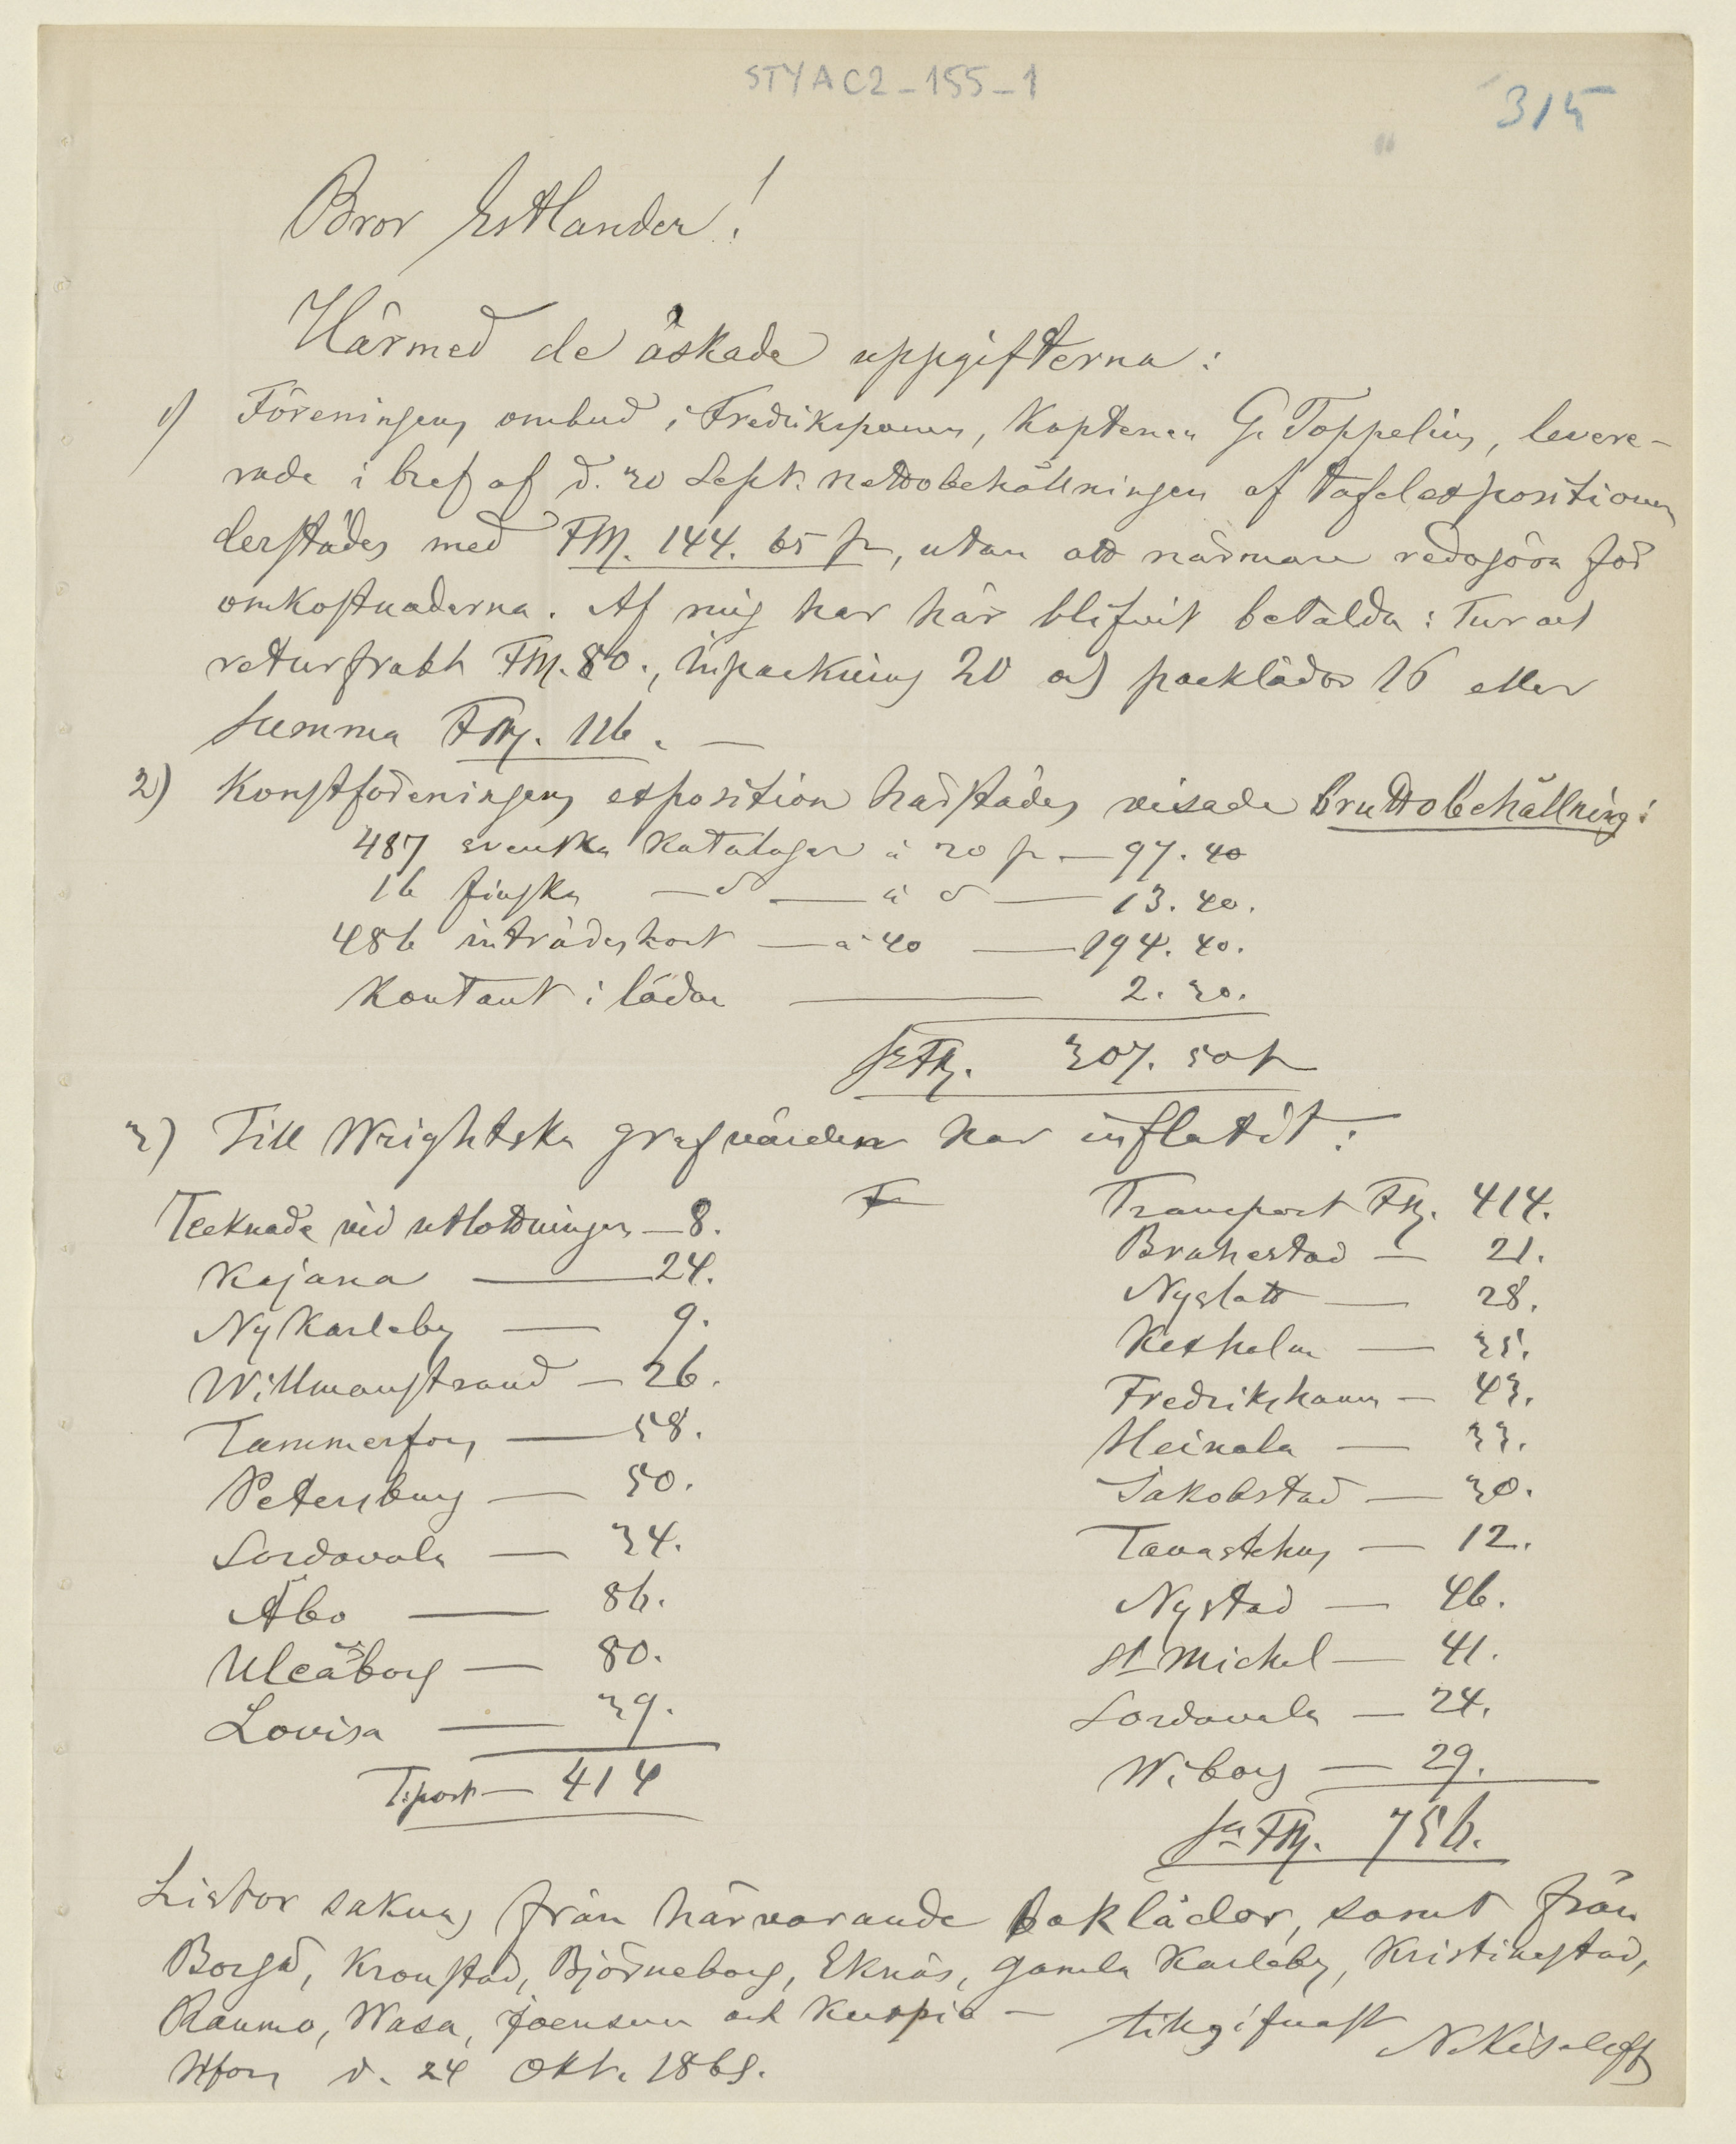 STYAC2_155_1
315
Bror Estlander!
Härmed de äskade uppgifterna:
1) Föreningens ombud i Fredrikshamn, Kaptenen G. Toppelius, levere-
rade i bref af d. 30 Sept. nettobehållningen af tafelexpositionen
derstädes med FM. 144. 65 p, utan att närmare redogöra för
omkostnaderna. Af mig har här blifvit betalda: Tur och
returfrakt FM. 80., inpackning 20 och packlådor 16 eller
Summa FM. 116. —
2) Konstföreningens exposition härstädes visade bruttobehållning:
487 svenska Kataloger à 20 p — 97. 40
16 finska — d — à d — 13. 40.
486 inträdeskort — à 40 — 194. 40.
Kontant i lådan — 2. 30.
Sa FM. 307. 50 p
3) Till Wrightska grafvården har influtit:
Tecknade vid utlottningen — 8.
Kajana — 24.
Ny Karleby — 9.
Willmanstrand — 26.
Tammerfors — 58.
Petersburg — 50.
Sordavala — 34.
Åbo — 86.
Uleåborg — 80.
Lovisa — 39.
T:port — 414
Transport FM. 414.
Brahestad — 21.
Nyslott — 28.
Kexholm — 35.
Fredrikshamn — 43.
Heinola — 33.
Jakobstad — 30.
Tavastehus — 12.
Nystad — 46.
St Michel — 41.
Sordavala — 24.
Wiborg — 29.
Sa FM. 756.
Listor saknas från härvarande boklådor, samt från
Borgå, Kronstad, Björneborg, Eknäs, Gamla Karleby, Kristinestad,
Raumo, Wasa, Joensuu och Kuopio —
tillgifnast N Kiseleff
Hfors d. 24 Okt. 1869.